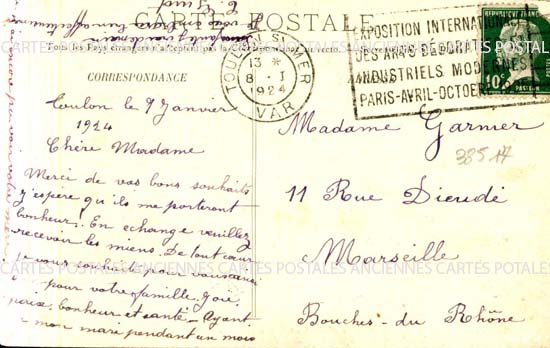 CARTE POSTALE
Tous les Pays étrangers n'acceptent pas la Correspondance au recto.
CORRESPONDANCE
TOULON S MER
13 *
8 - I
1924
VAR
EXPOSITION INTERNATION
DES ARTS DÉCORAT
INDUSTRIELS MODERNES
PARIS-AVRIL-OCTOB
10c
PASTEUR
Toulon le 9 Janvier
1924
Chère Madame
Merci de vos bons souhaits
j'espère qu'ils me porteront
bonheur! En échange veuillez
recevoir les miens. De tout cœur
je vous souhaite pour vous
pour votre famille, joie,
paix, bonheur et santé - Ayant
mon mari pendant un mois
encore pu voir votre
Madame Garnier
38517
11 Rue Dieudé
Marseille
Bouches-du Rhône
CARTES POSTALES ANCIENNES CARTES POSTALES ANCIENNES CARTES POTALES